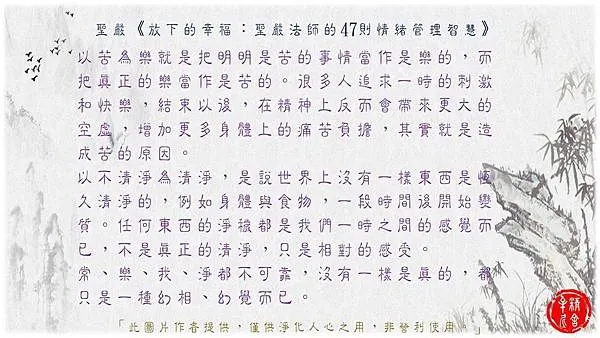 聖嚴《放下的幸福：聖嚴法師的47則情緒管理智慧》
以苦為樂就是把明明是苦的事情當作是樂的，而
把真正的樂當作是苦的。很多人追求一時的刺激
和快樂，結束以後，在精神上反而會帶來更大的
空虛，增加更多身體上的痛苦負擔，其實就是造
成苦的原因。
以不清淨為清淨，是說世界上沒有一樣東西是恆
久清淨的，例如身體與食物，一段時間後開始變
質。任何東西的淨穢都是我們一時之間的感覺而
已，不是真正的清淨，只是相對的感受。
常、樂、我、淨都不可靠，沒有一樣是真的，都
只是一種幻相、幻覺而已。
「此圖片作者提供，僅供淨化人心之用，非營利使用。」